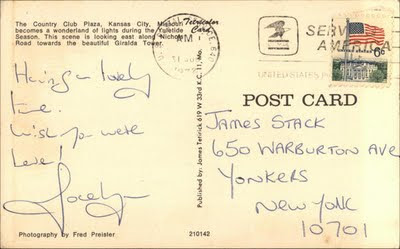 The Country Club Plaza, Kansas City, Missouri
becomes a wonderland of lights during the Yuletide
Season. This scene is looking east along Nichols
Road towards the beautiful Giralda Tower.
Tetricolor
Card
AM
SERV
AMERICA
UNITED STATES
6c
Having a lovely
time.
Wish you were
here!
Jocelyn
Published by: James Tetirick 619 W 33rd K.C. 11, Mo.
POST CARD
JAMES STACK
650 WARBURTON AVE
YONKERS
NEW YORK
10701
Photography by Fred Preister
210142